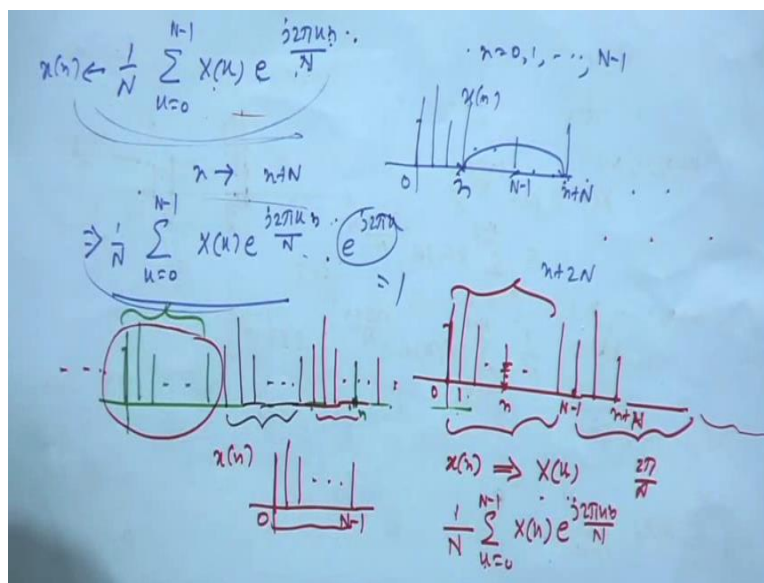 x(n) ← 1/N ∑_{k=0}^{N-1} X(k) e^{j2πkn/N}
n=0, 1, ---, N-1
x(n)
0 n N-1 n+N
n → n+N
⇒ 1/N ∑_{k=0}^{N-1} X(k) e^{j2πkn/N} . e^{j2πk}
= 1
n+2N
n
0 1 n N-1 n+N
x(n)
0 N-1
x(n) ⇒ X(k) 2π/N
1/N ∑_{k=0}^{N-1} X(k) e^{j2πkn/N}